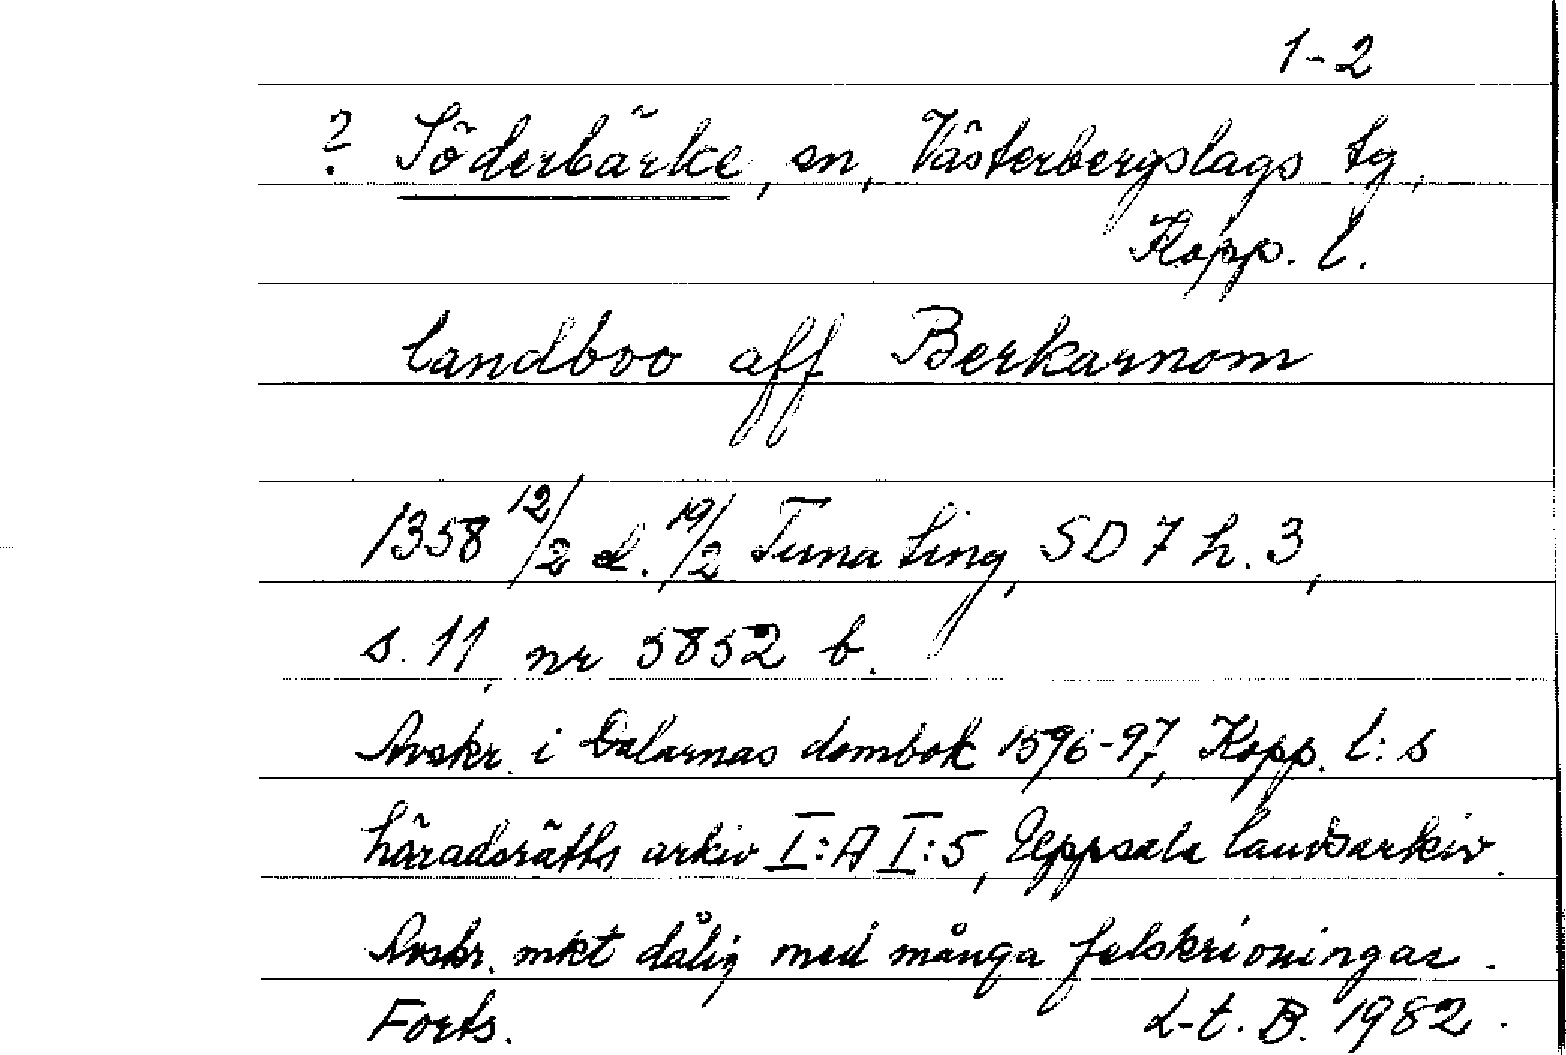 1-2
? Söderbärke, sn, Västerbergslags tg,
Kopp. l.
landboo aff Berkarnom
1358 12/2 el. 19/2 Tuna ting, SD 7 h. 3,
s. 11, nr 5852 b.
Avskr. i Dalarnas dombok 1596-97, Kopp. l:s
häradsrätts arkiv I:A I:5, Uppsala landsarkiv.
Avskr. mkt dålig med många felskrivningar.
Forts. L-t. B. 1982.